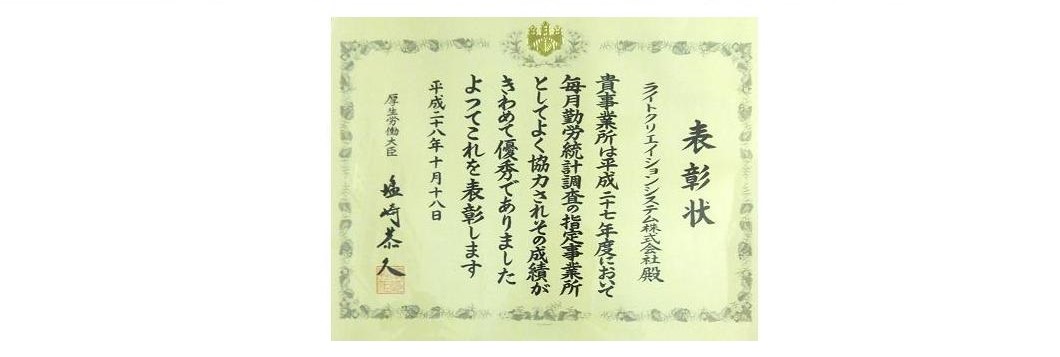 表彰状
ライトクリエイションシステム株式会社 殿
貴事業所は平成二十七年度において
毎月勤労統計調査の指定事業所
としてよく協力されその成績が
きわめて優秀でありました
よつてこれを表彰します
平成二十八年十月十八日
厚生労働大臣 塩崎恭久